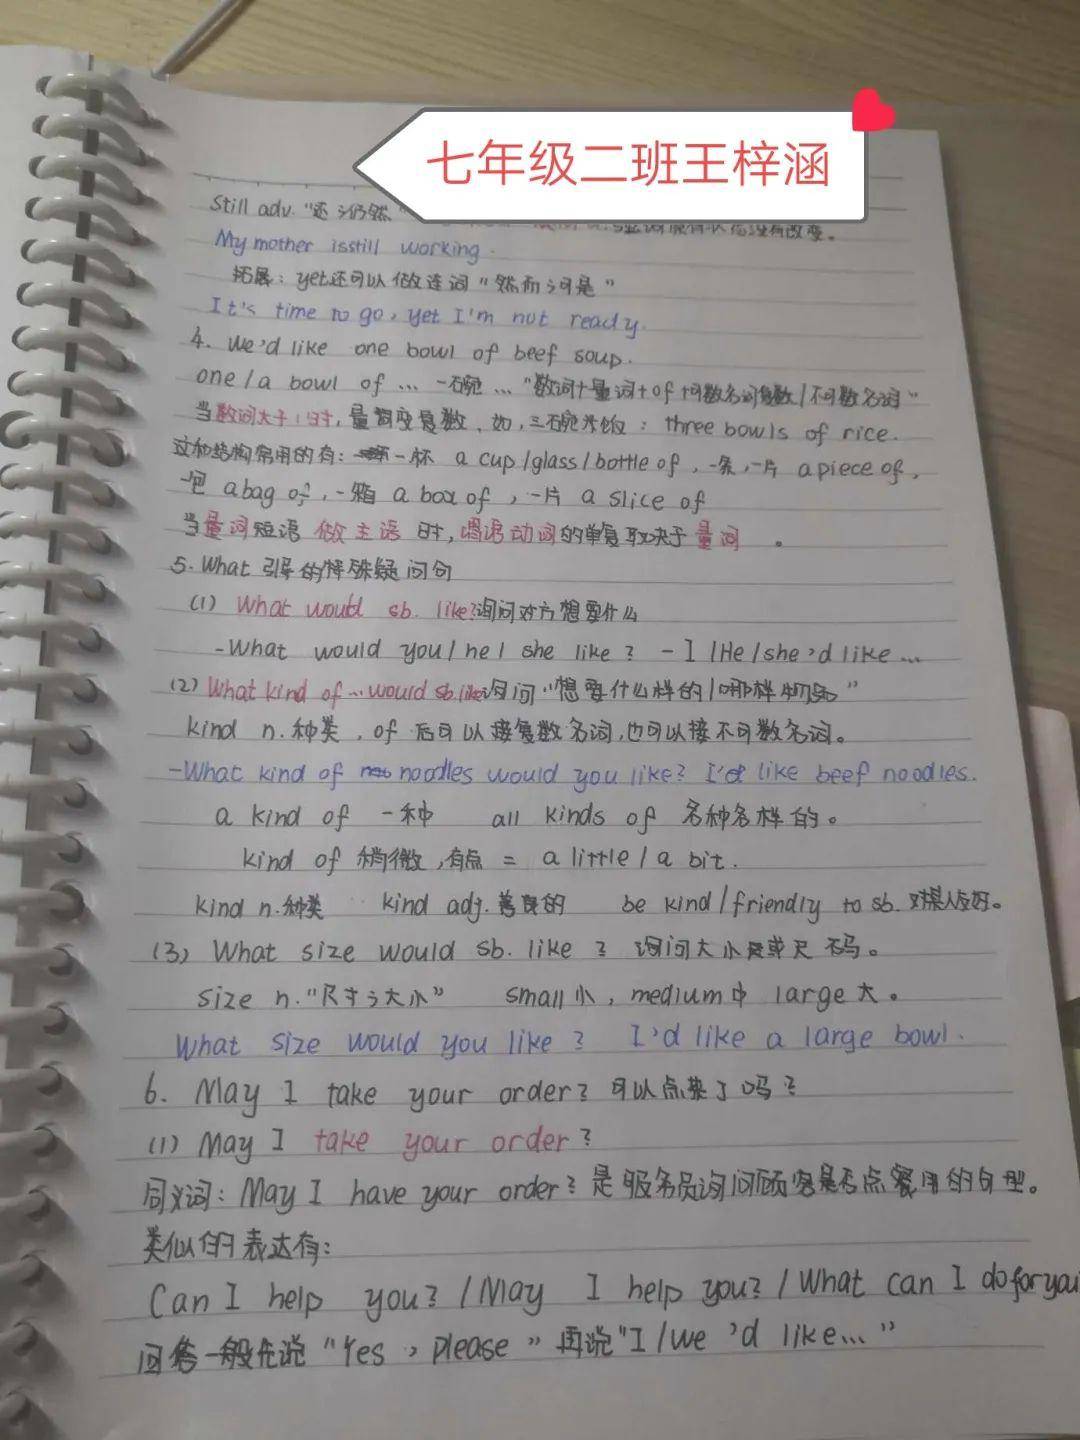 七年级二班王梓涵
Still adv. "还；仍然"
有改变。
My mother isstill working.
拓展：yet还可以做连词"然而；可是"
It's time to go, yet I'm not ready.
4. We'd like one bowl of beef soup.
one/a bowl of ... 一碗 ... "数词+量词+of+可数名词复数/不可数名词"
当数词大于1时，量词变复数，如，三碗米饭：three bowls of rice.
这种结构常用的有：一杯 a cup/glass/bottle of，一条，一片 a piece of，
一包 a bag of，一箱 a box of，一片 a slice of
当量词短语做主语时，谓语动词的单复取决于量词。
5. What 引导的特殊疑问句
(1) What would sb. like?询问对方想要什么
-What would you/he/she like? -I/He/she'd like...
(2) What kind of ... would sb. like询问"想要什么样的/哪样物品"
kind n.种类，of 后可以接复数名词，也可以接不可数名词。
-What kind of noodles would you like? I'd like beef noodles.
a kind of 一种 all kinds of 各种各样的。
kind of 稍微，有点 = a little/a bit.
kind n.种类 kind adj.善良的 be kind/friendly to sb. 对某人友好。
(3) What size would sb. like? 询问大小或尺码。
size n."尺寸；大小" small小，medium中 large大。
What size would you like? I'd like a large bowl.
6. May I take your order? 可以点菜了吗？
(1) May I take your order?
同义词：May I have your order? 是服务员询问顾客是否点餐用的句型。
类似的表达有：
Can I help you? / May I help you? / What can I do for you
回答一般先说"Yes, please"再说"I/we'd like..."